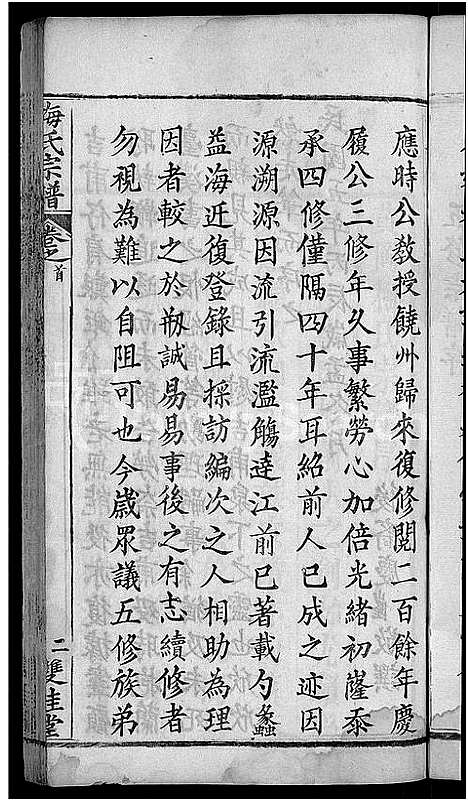 應時公教授饒州歸來復修閱二百餘年慶
履公三修年久事繁勞心加倍光緒初薩忝
承四修僅隔四十年耳紹前人已成之迹因
源溯源因流引流濫觴逹江前已著載勺蠡
益海近復登錄且採訪編次之人相助為理
因者較之於剏誠易易事後之有志續修者
勿視為難以自阻可也今嵗眾議五修族弟
梅氏宗譜
卷之首
二
雙桂堂